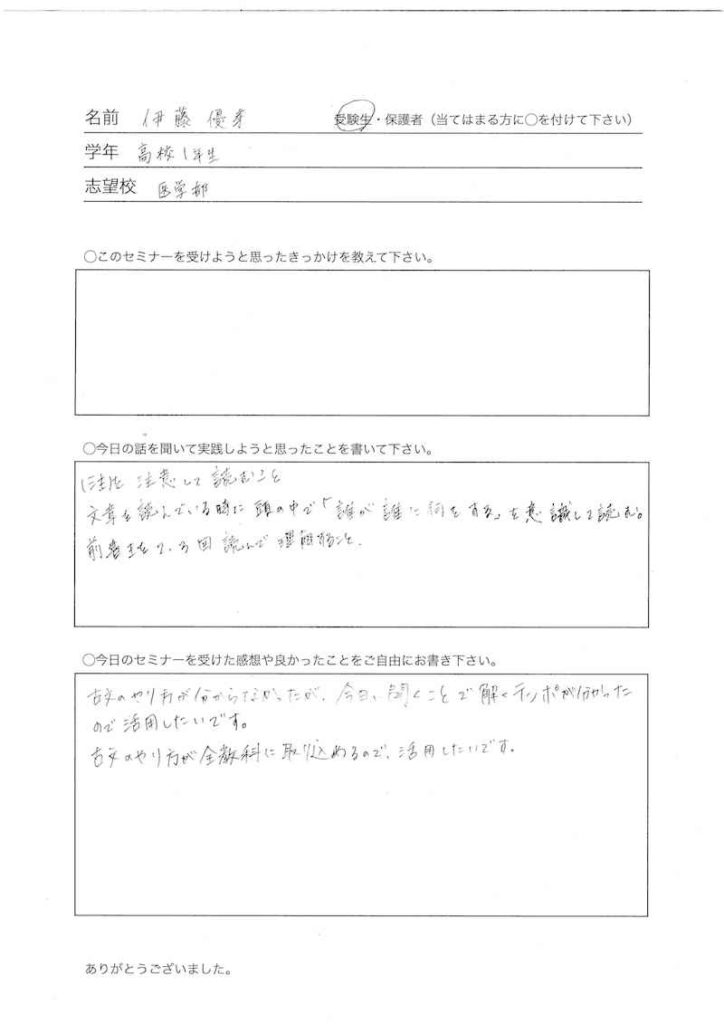 名前 伊藤 優芽 受験生・保護者（当てはまる方に○を付けて下さい）
学年 高校1年生
志望校 医学部
○このセミナーを受けようと思ったきっかけを教えて下さい。
○今日の話を聞いて実践しようと思ったことを書いて下さい。
注意して読むこと
文章を読んでいる時に頭の中で「誰が誰に何をする」を意識して読む。
2,3回読んで理解すること.
○今日のセミナーを受けた感想や良かったことをご自由にお書き下さい。
古文のやり方が分からなかったが、今日、聞くことで解くテンポが分かった
ので活用したいです。
古文のやり方が全教科に取り込めるので、活用したいです。
ありがとうございました。